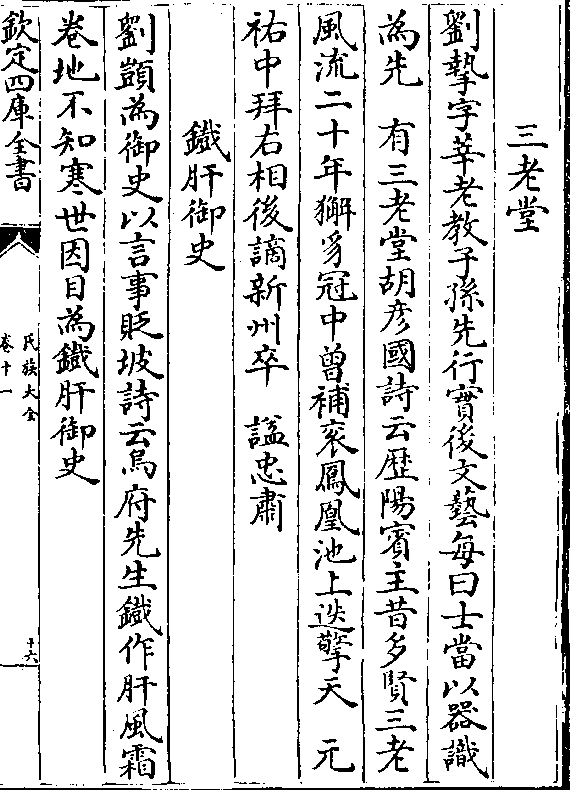 三老堂
劉摯字莘老教子孫先行實後文藝每曰士當以器識
為先　有三老堂胡彦國詩云歴陽賓主昔多賢三老
風流二十年獬豸冠中曾補衮鳳凰池上迭擎天　元
祐中拜右相後謫新州卒　諡忠肅
鐵肝御史
劉顗為御史以言事貶坡詩云烏府先生鐵作肝風霜
卷地不知寒世因目為鐵肝御史
欽定四庫全書
氏族大全
卷十一
十六